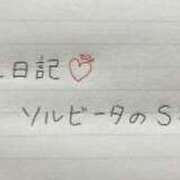 日記♡
ソルビータのS